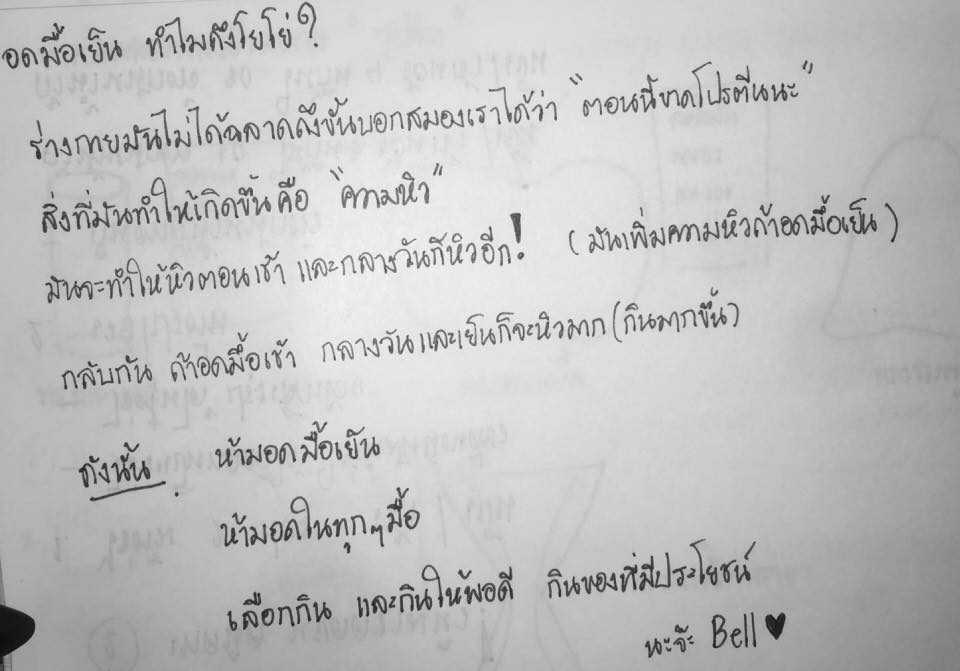 อดมื้อเย็น ทำไมถึงโยโย่?
ร่างกายมันไม่ได้ฉลาดถึงขั้นบอกสมองเราได้ว่า "ตอนนี้ขาดโปรตีนนะ"
สิ่งที่มันทำให้เกิดขึ้นคือ "ความหิว"
มันจะทำให้หิวตอนเช้า และกลางวันก็หิวอีก! (มันเพิ่มความหิวถ้าอดมื้อเย็น)
กลับกัน ถ้าอดมื้อเช้า กลางวันและเย็นก็จะหิวมาก (กินมากขึ้น)
ดังนั้น ห้ามอดมื้อเย็น
ห้ามอดในทุกๆมื้อ
เลือกกิน และกินให้พอดี กินของที่มีประโยชน์
นะจ๊ะ Bell ♥